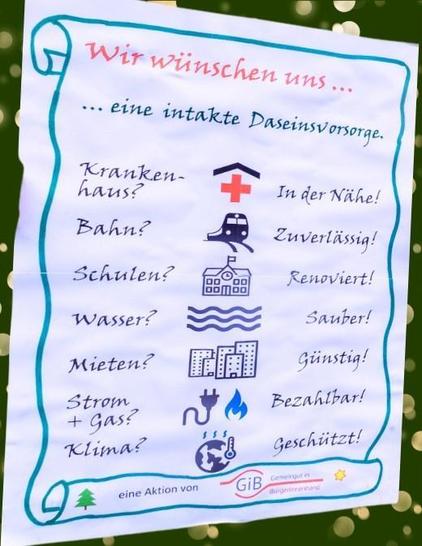 Wir wünschen uns ...
... eine intakte Daseinsvorsorge.
Kranken-
haus?
In der Nähe!
Bahn?
Zuverlässig!
Schulen?
Renoviert!
Wasser?
Sauber!
Mieten?
Günstig!
Strom
+ Gas?
Bezahlbar!
Klima?
Geschützt!
eine Aktion von
GiB
Gemeingut in
BürgerInnenhand